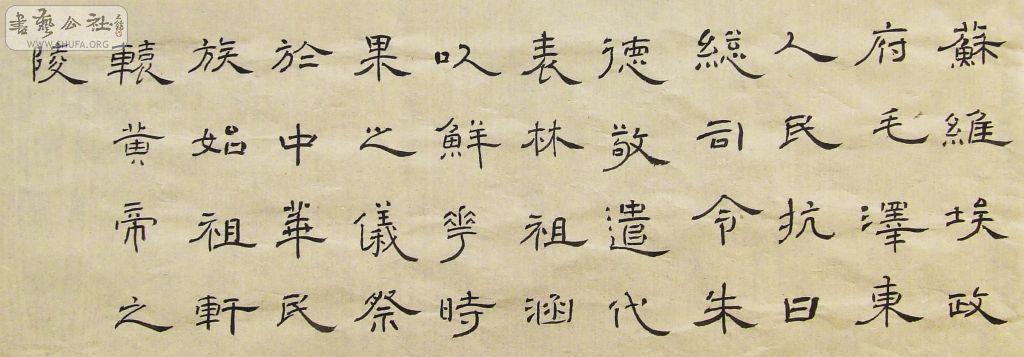 蘇維埃政
府毛澤東
人民抗日
総司令朱
德敬遣代
表林祖涵
以鮮花時
果之儀祭
於中華民
族始祖軒
轅黃帝之
陵
書藝公社
WWW.SHUFA.ORG